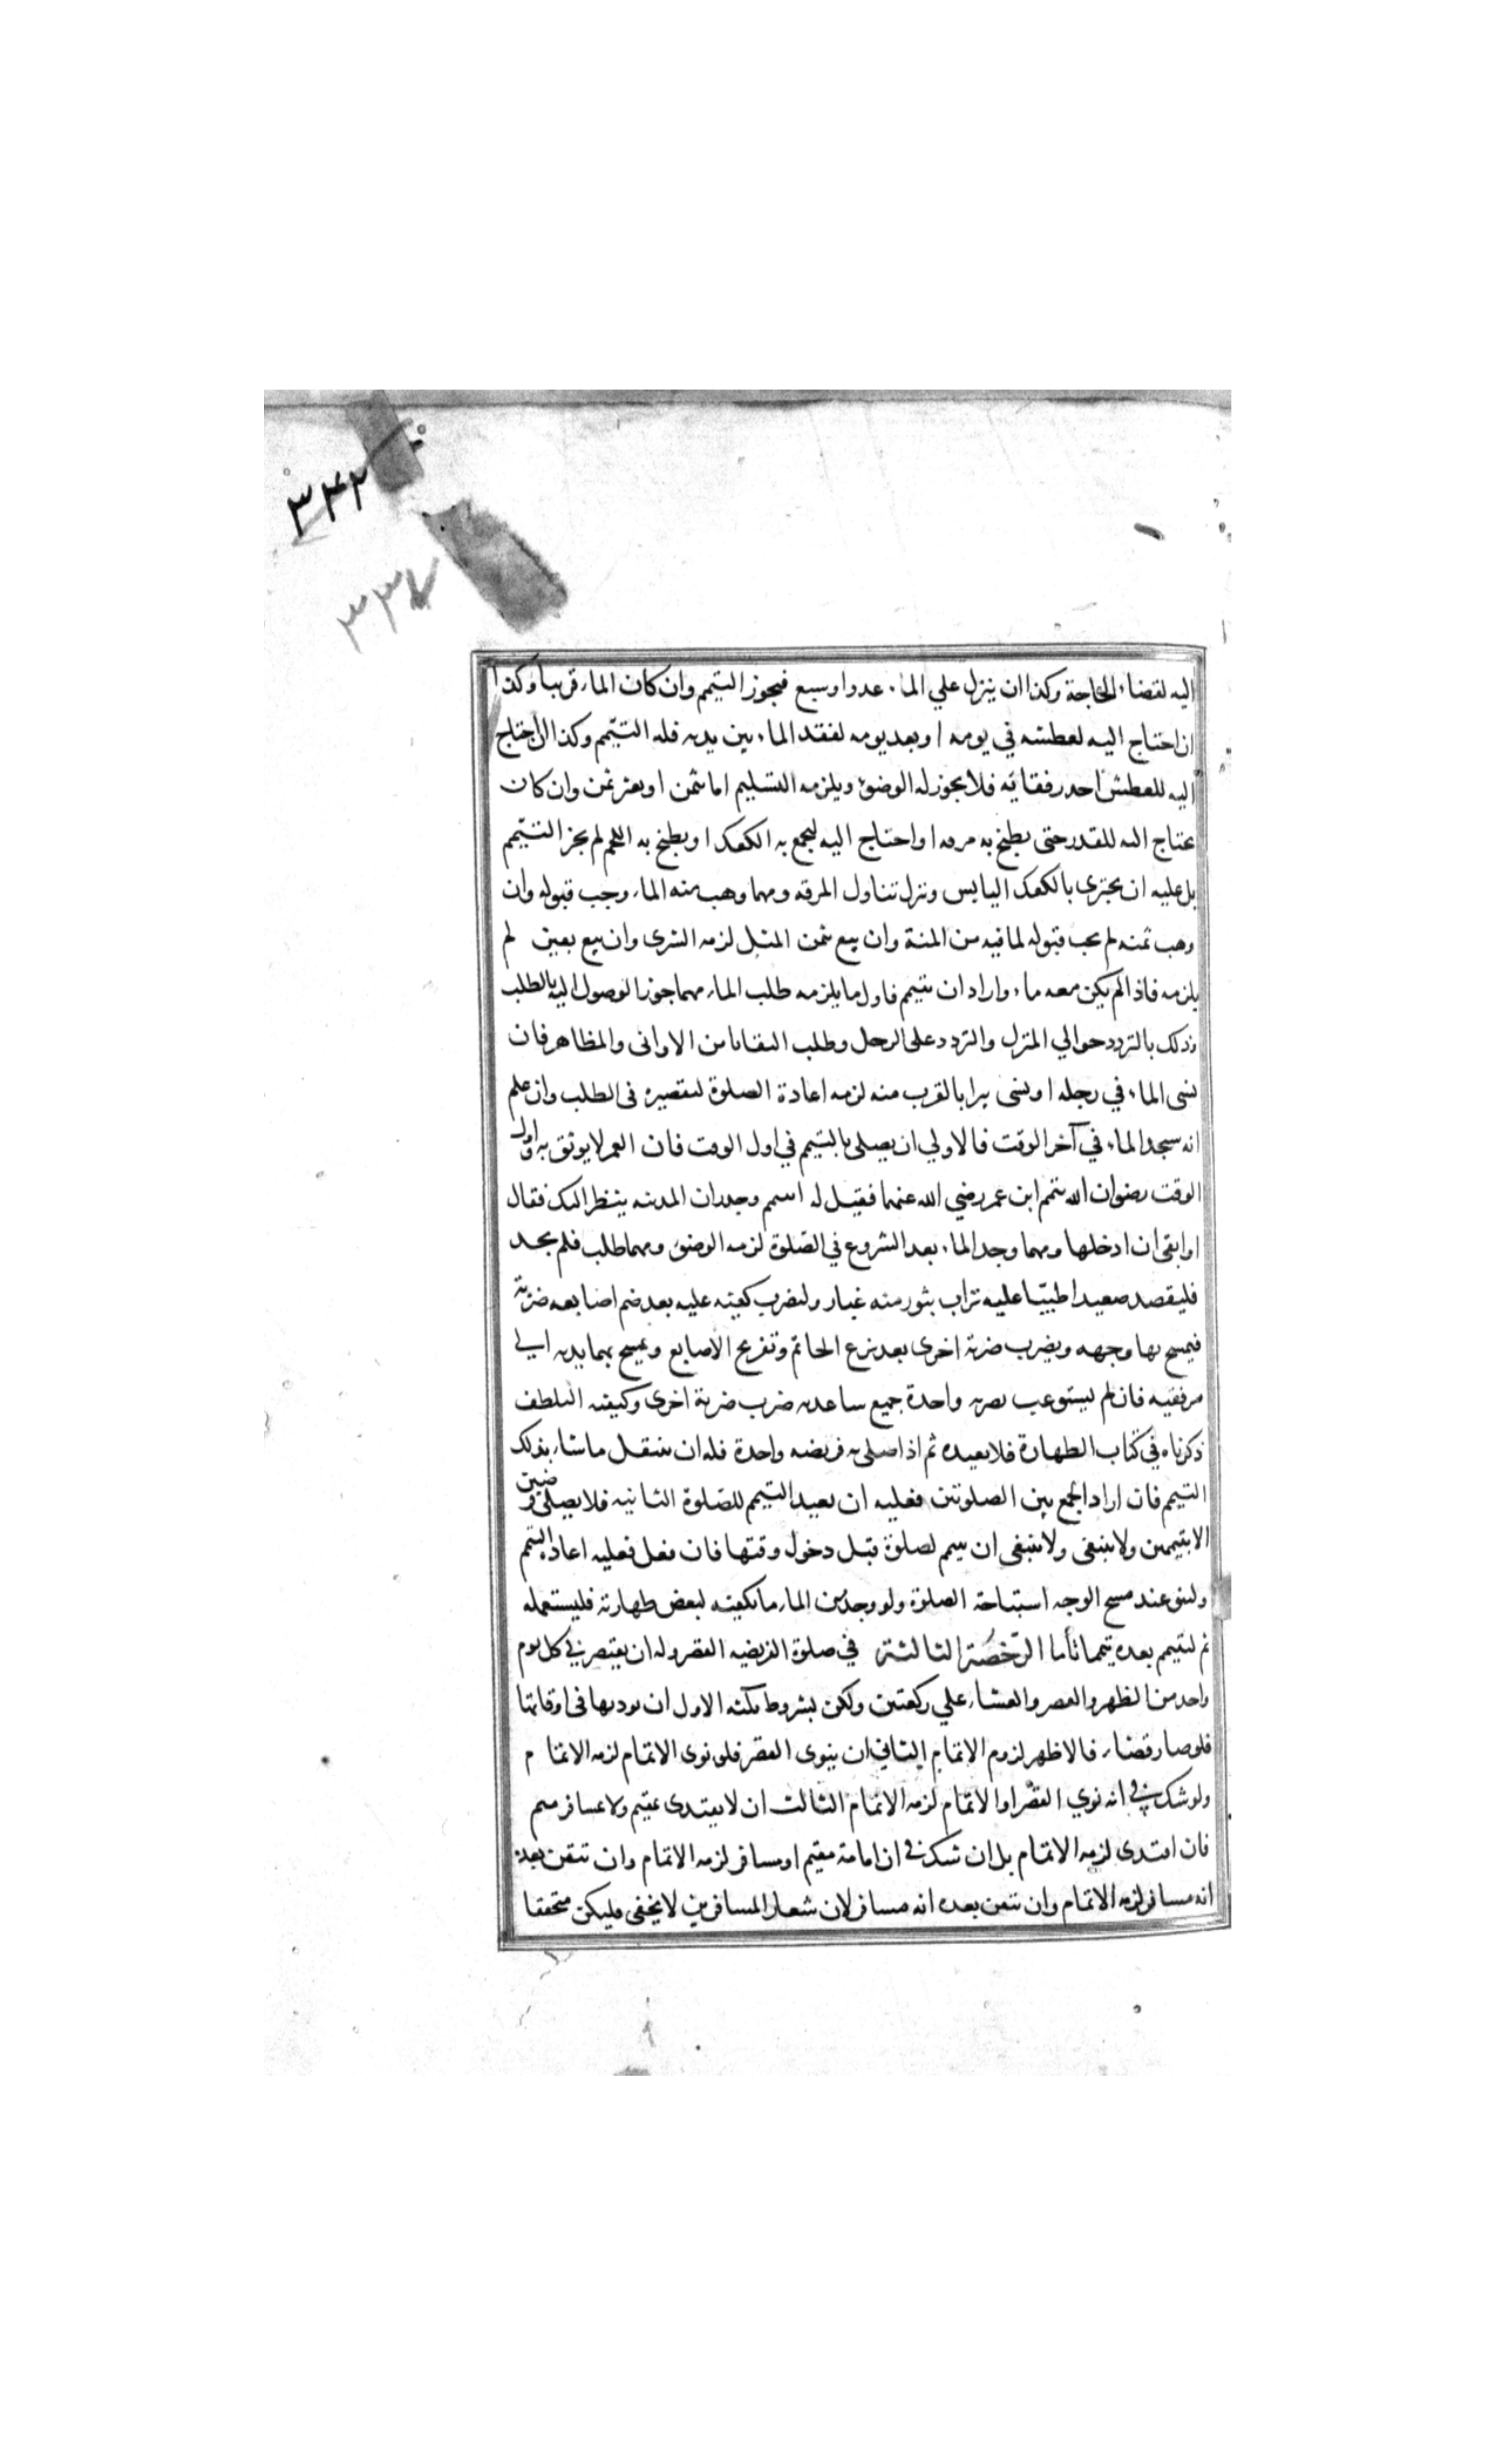 ٣٤٢
٣٣٧
اليه لقضاء الحاجة وكذا ان ينزل علي الماء عدوا وسبع فيجوز التيمم وان كان الماء قريبا وكذا
ان احتاج اليه لعطشه في يومه او بعد يومه لفقد الماء بين يديه فله التيمم وكذا ان احتاج
اليه للعطش احد رفقايه فلا يجوز له الوضؤ ويلزمه التسليم اما بثمن او بغير ثمن وان كان
يحتاج اليه للقدر حتى يطبخ به مرقه او احتاج اليه ليجمع به الكعك او يطبخ به اللحم لم يجز التيمم
بل عليه ان يجتزى بالكعك اليابس وتنزل تناول المرقه ومهما وهب منه الماء وجب قبوله وان
وهب ثمنه لم يجب قبوله لما فيه من المنة وان بيع بثمن المثل لزمه الشرى وان بيع بغبن لم
يلزمه فاذا لم يكن معه ماء واراد ان يتيمم فاول ما يلزمه طلب الماء مهما جوز الوصول اليه بالطلب
وذلك بالتردد حوالي المنزل والتردد على الرحل وطلب البقايا من الاوانى والمظاهر فان
نسى الماء في رحله او نسى بيرا بالقرب منه لزمه اعادة الصلوة لتقصيره فى الطلب وان علم
انه سيجد الماء في آخر الوقت فالاولي ان يصلى بالتيمم في اول الوقت فان العمر لا يوثق به واول
الوقت رضوان الله تيمم ابن عمر رضي الله عنهما فقيل له اتيمم وجدران المدينه ينظر اليك فقال
اوابقى ان ادخلها ومهما وجد الماء بعد الشروع في الصلوة لزمه الوضؤ ومهما طلب فلم يجد
فليقصد صعيدا طيبا عليه تراب يثور منه غبار وليضرب كفيه عليه بعد ضم اصابعه ضربة
فيمسح بها وجهه ويضرب ضربة اخرى بعد نزع الخاتم وتفريج الاصابع ويمسح بهما يديه الي
مرفقيه فان لم يستوعب بضربه واحدة جميع ساعديه ضرب ضربة اخرى وكيفيته التلطف
ذكرناه في كتاب الطهارة فلا نعيده ثم اذا صلى به فريضه واحدة فله ان يتنفل ما شاء بذلك
التيمم فان اراد الجمع بين الصلوتين فعليه ان يعيد التيمم للصلوة الثانيه فلا يصلى فرضين
الا بتيممين ولا ينبغى ولا ينبغى ان يتيمم لصلوة قبل دخول وقتها فان فعل فعليه اعاد التيمم
ولينو عند مسح الوجه استباحة الصلوة ولو وجد من الماء ما يكفيه لبعض طهارته فليستعمله
ثم ليتيمم بعده تيمما تاما الرخصة الثالثة في صلوة الفريضه القصر وله ان يقتصر في كل يوم
واحد من الظهر والعصر والعشاء علي ركعتين ولكن بشروط ثلثه الاول ان يوديها فى اوقاتها
فلو صار قضاء فالاظهر لزوم الاتمام الثاني ان ينوى القصر فلو نوى الاتمام لزمه الاتمام
ولو شك في انه نوي القصر او الاتمام لزمه الاتمام الثالث ان لا يقتدى بمقيم ولا بمسافر متمم
فان اقتدى لزمه الاتمام بل ان شك في ان امامه مقيم او مسافر لزمه الاتمام وان تيقن بعده
انه مسافر لزمه الاتمام وان تيقن بعده انه مسافر لان شعار المسافرين لا يخفى فليكن متحققا